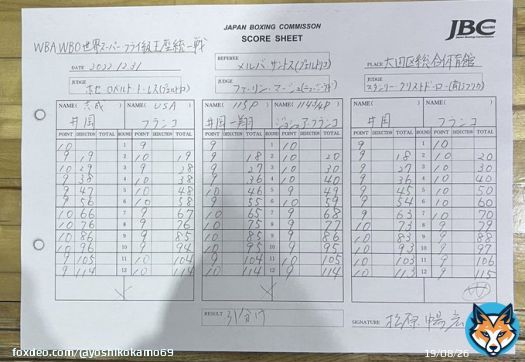 JAPAN BOXING COMMISSON
SCORE SHEET
JBC
WBA WBO世界スーパーフライ級王座統一戦
DATE 2022.12.31
REFEREE メルバ サントス(プエルトリコ)
PLACE 大田区総合体育館
JUDGE
JUDGE
JUDGE
NAME( ) NAME( USA ) NAME( ) NAME( ) NAME( ) NAME( )
井岡 フランコ 井岡一翔 ジョシュア フランコ 井岡 フランコ
POINT DEDUCTION TOTAL ROUND POINT DEDUCTION TOTAL POINT DEDUCTION TOTAL ROUND POINT DEDUCTION TOTAL POINT DEDUCTION TOTAL ROUND POINT DEDUCTION TOTAL
10 1 9 9 1 10 9 1 10
9 19 2 10 19 9 18 2 10 20 9 18 2 10 20
10 29 3 9 28 9 27 3 10 30 9 27 3 10 30
9 38 4 10 38 9 36 4 10 40 9 36 4 10 40
9 47 5 10 48 10 46 5 9 49 9 45 5 10 50
9 56 6 10 58 9 55 6 10 59 9 54 6 10 60
10 66 7 9 67 10 65 7 9 68 9 63 7 10 70
10 76 8 9 76 10 75 8 9 77 10 73 8 9 79
10 86 9 9 85 10 85 9 9 86 10 83 9 9 88
10 96 10 9 94 10 95 10 9 95 10 93 10 9 97
9 105 11 10 104 9 104 11 10 105 10 103 11 9 106
9 114 12 10 114 10 114 12 9 114 10 113 12 9 115
RESULT 引分け
SIGNATURE
foxdeo.com/@yoshikokamo69
19/08/26